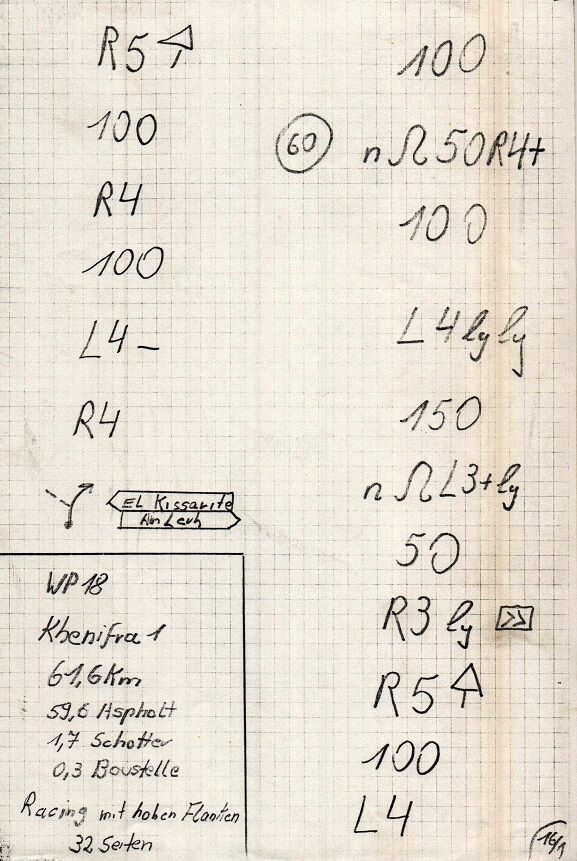 R5
100
R4
100
L4 -
R4
EL Kissarite
WP 18
Khenifra 1
61,6 Km
59,6 Asphalt
1,7 Schotter
0,3 Baustelle
Racing mit hohen
32 Seiten
100
60
n Ω 50 R4+
100
L4 ly ly
150
n Ω L3+ ly
50
R3 ly >>
R5
100
L4
16/1